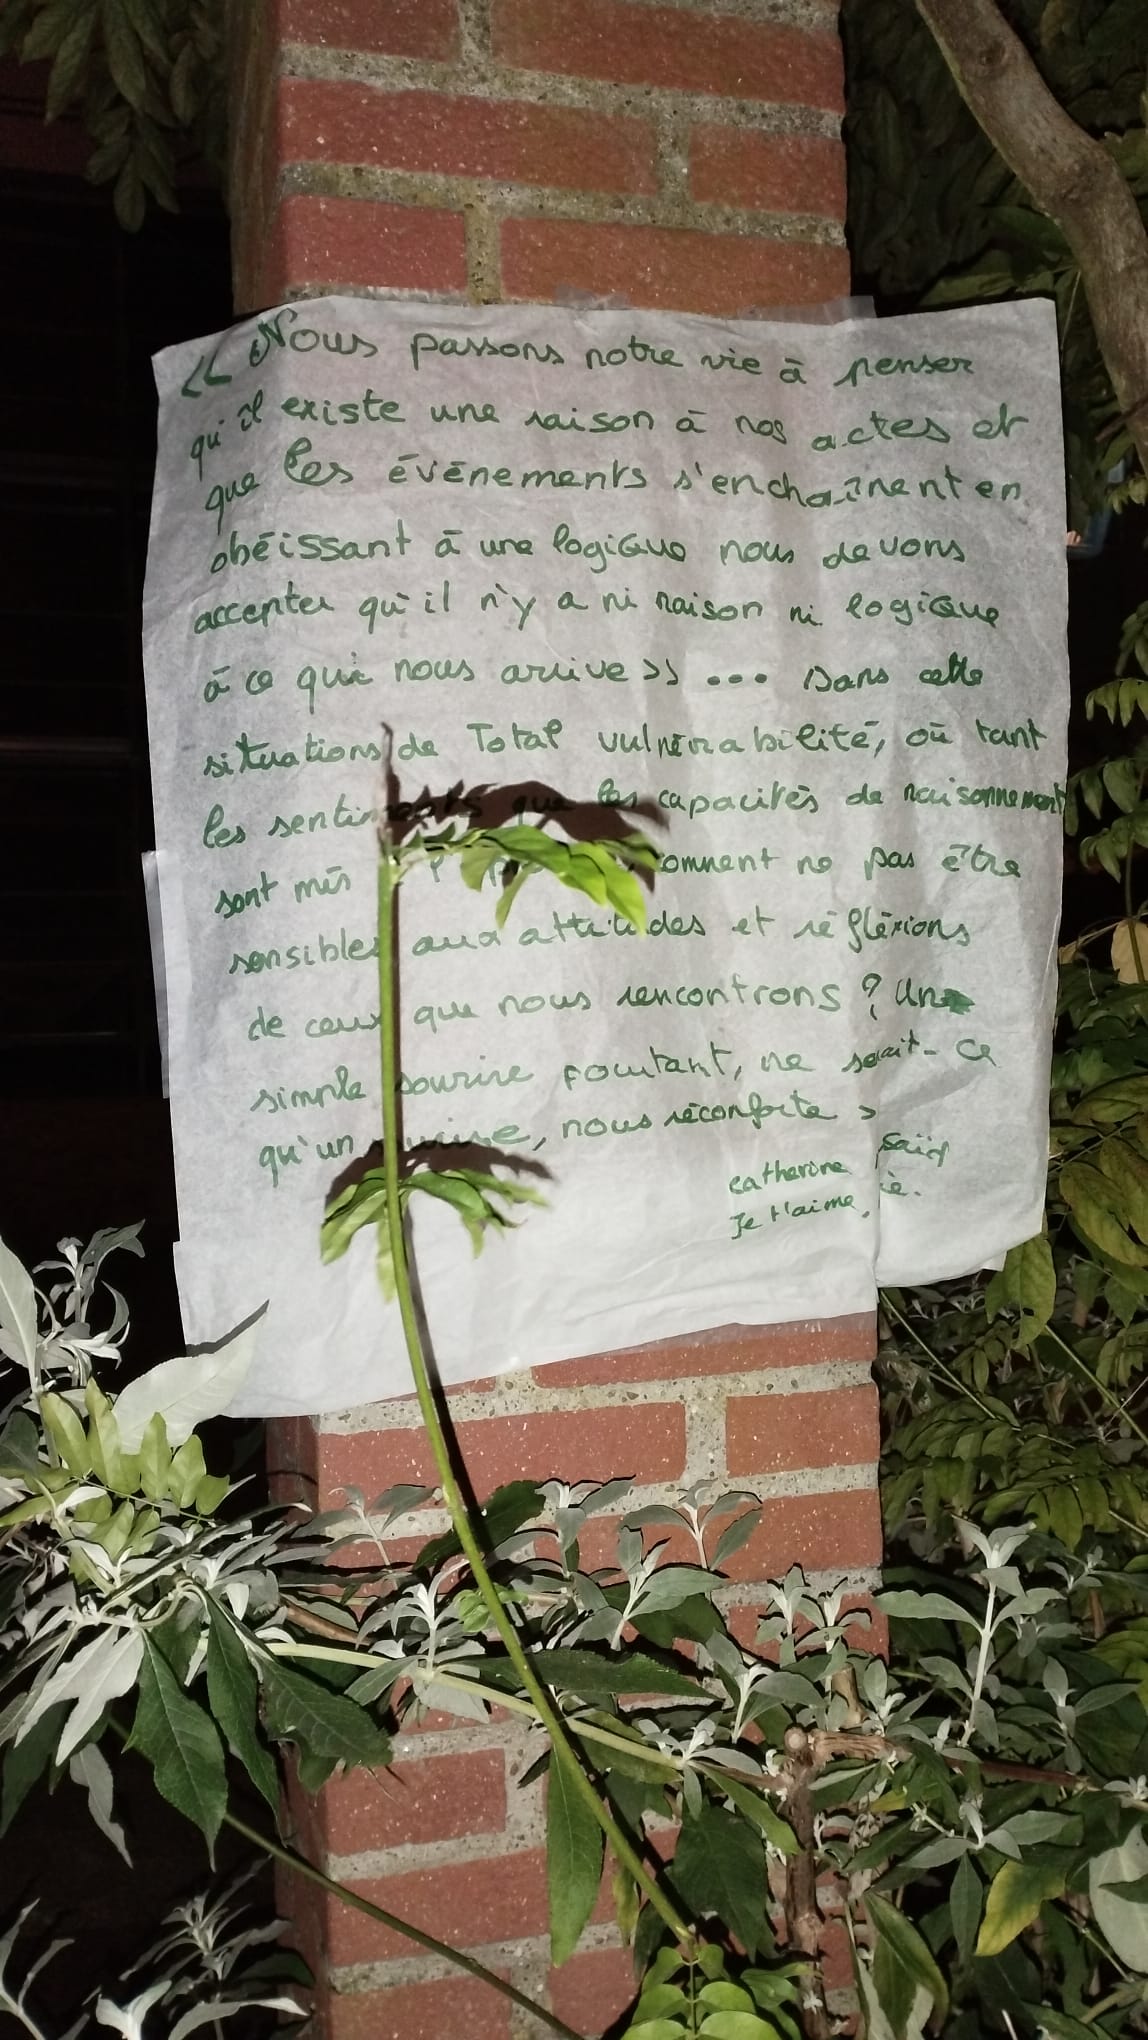 « Nous passons notre vie à penser
qu'il existe une raison à nos actes et
que les événements s'enchaînent en
obéissant à une logique nous devons
accepter qu'il n'y a ni raison ni logique
à ce qui nous arrive » ... Dans cette
situations de Total vulnérabilité, où tant
les sentiments que les capacités de raisonnement
sont mis comment ne pas être
sensibles aux attitudes et réfléxions
de ceux que nous rencontrons ? Un
simple sourire pourtant, ne serait-ce
qu'un sourire, nous réconforte >
catherine Saïd
Je t'aime,